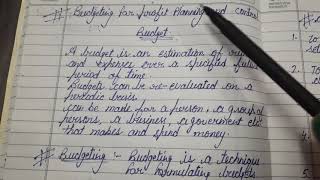 # Budgeting for Profit Planning and control
Budget
A budget is an estimation of
and expenses over a specified future
period of time.
Budgets can be re-evaluated on a
periodic basis.
can be made for a person, a group of
persons, a business, a government etc
that makes and spend money.
# Budgeting :- Budgeting is a technique
for formulating budgets
1.
2.
3.
5.